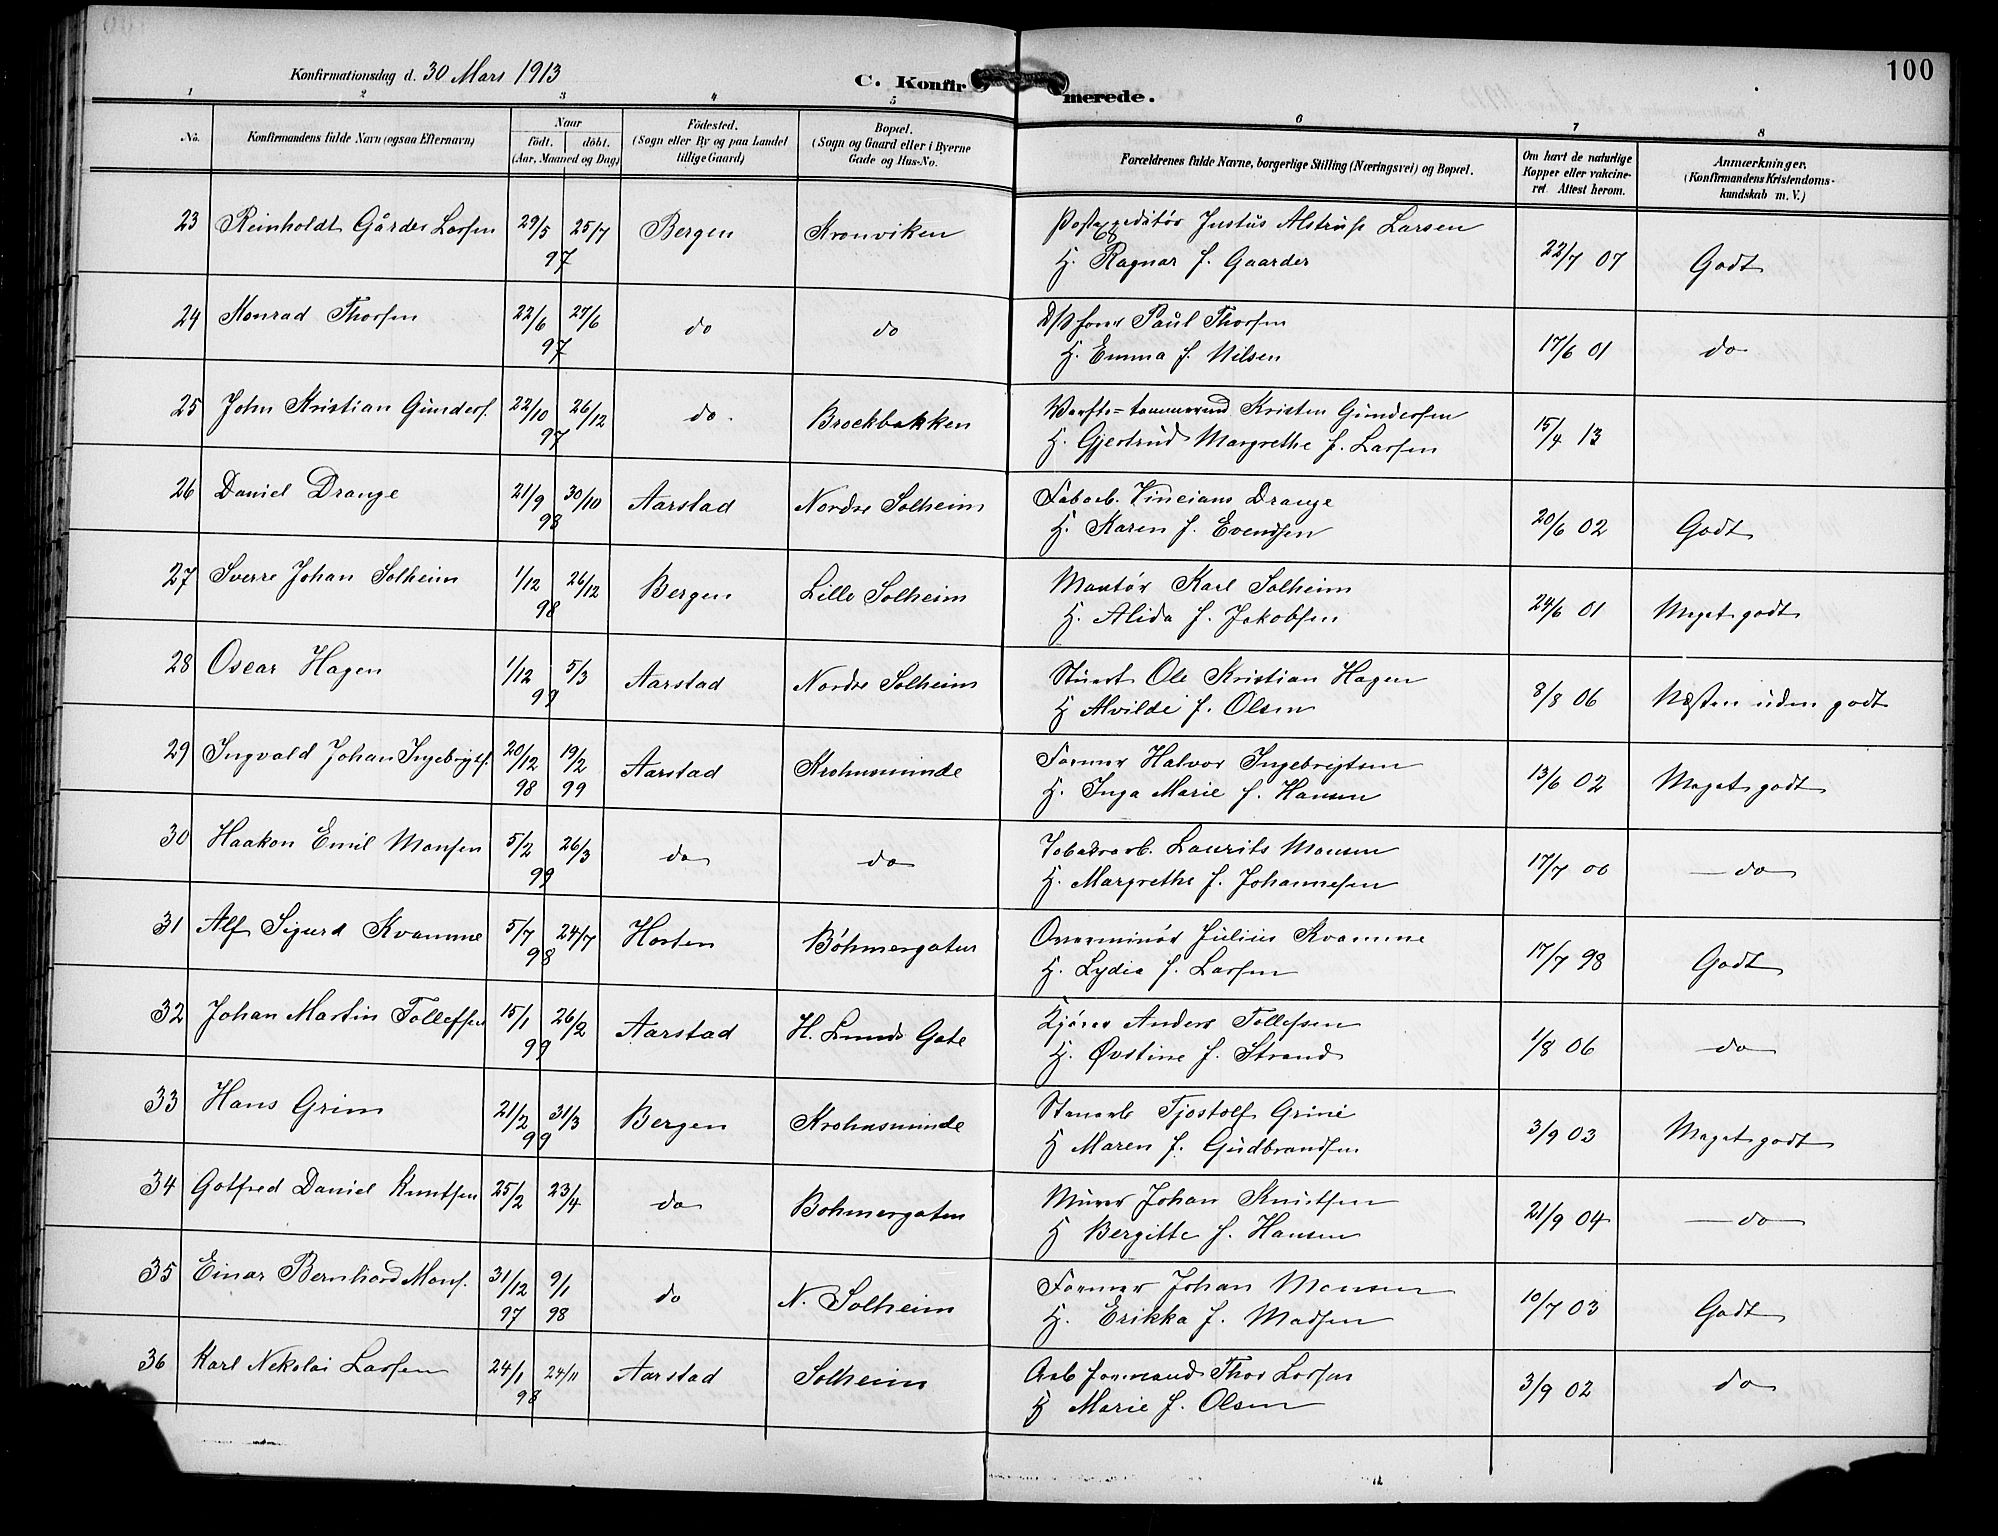 100
Konfirmationsdag d. 30 Mars 1913
C. Konfirmerede.
1 2 3 4 5 6 7 8
No. Konfirmandens fulde Navn (ogsaa Efternavn) Naar født. døbt. (Aar, Maaned og Dag) Födested. (Sogn eller By og paa Landet tillige Gaard) Bopæl. (Sogn og Gaard eller i Byerne Gade og Hus-No. Forældrenes fulde Navne, borgerlige Stilling (Næringsvei) og Bopæl. Om havt de naturlige Kopper eller vakcineret. Attest herom. Anmærkninger. (Konfirmandens Kristendomskundskab m. V.)
23 Reinholdt Gårder Larsen 29/5 25/7 97 Bergen Kronviken Postexpeditör Justus Alstrup Larsen 22/7 07 Godt
H. Ragnar f. Gaarder
24 Konrad Thorsen 22/6 27/6 97 do do Paul Thorsen 17/6 01 do
H. Emma f. Nilsen
25 John Kristian Gunders. 22/10 26/12 97 do Brockbakken Verfts=tömmermd Kristen Gundersen 15/4 13
H. Gjertrud Margrethe f. Larsen
26 Daniel Drange 21/9 30/10 98 Aarstad Nordre Solheim Fabarb. Drange 20/6 02 Godt
H. Karen f. Evendsen
27 Sverre Johan Solheim 1/12 26/12 98 Bergen Lille Solheim Montör Karl Solheim 24/6 01 Meget godt
H. Alida f. Jakobsen
28 Oscar Hagen 1/12 5/3 99 Aarstad Nordre Solheim Stuert Ole Kristian Hagen 8/8 06 Næsten uden godt
H Alvilde f. Olsen
29 Ingvald Johan Ingebrigts. 20/12 98 19/2 99 Aarstad Krohnsminde Former Halvor Ingebrigtsen 13/6 02 Meget godt
H. Inga Marie f. Hansen
30 Haakon Emil Monsen 5/2 26/3 99 do do Tobaksarb. Laurits Monsen 17/7 00 do
H. Margrethe f. Johannesen
31 Alf Sigurd Kvamme 5/7 24/7 98 Horten Böhmergaten Overminör Julius Kvamme 17/7 98 Godt
H. Lydia f. Larsen
32 Johan Martin Tollefsen 15/1 26/2 99 Aarstad H. Lunds Gate Kjörer Anders Tollefsen 1/8 06 do
H. Øvstine f. Strand
33 Hans Grim 21/2 31/3 99 Bergen Krohnsminde Stenarb Tjostolf Grine 3/9 03 Meget godt
H Maren f. Gudbrandsen
34 Gotfred Daniel Knutsen 25/2 23/4 do Bohmergaten Murer Johan Knutsen 21/9 04 do
H Bergitte f. Hansen
35 Einar Bernhard Mons. 31/12 97 9/1 98 do N. Solheim Former Johan Monsen 10/7 03 Godt
H. Erikka f. Madsen
36 Karl Nekolai Larsen 24/1 24/11 98 Aarstad Solheim Arb formand Thor Larsen 3/9 02 do
H Marie f. Olsen